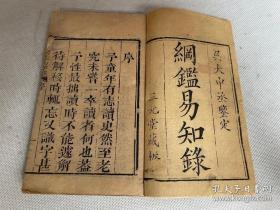 吳大中丞鑒定
綱鑑易知錄
三元堂藏板
序
予童年有志讀史然至老
究未嘗一卒讀者何也蓋
予性最拙讀時不能遽解
待解終時輒忘又識字甚